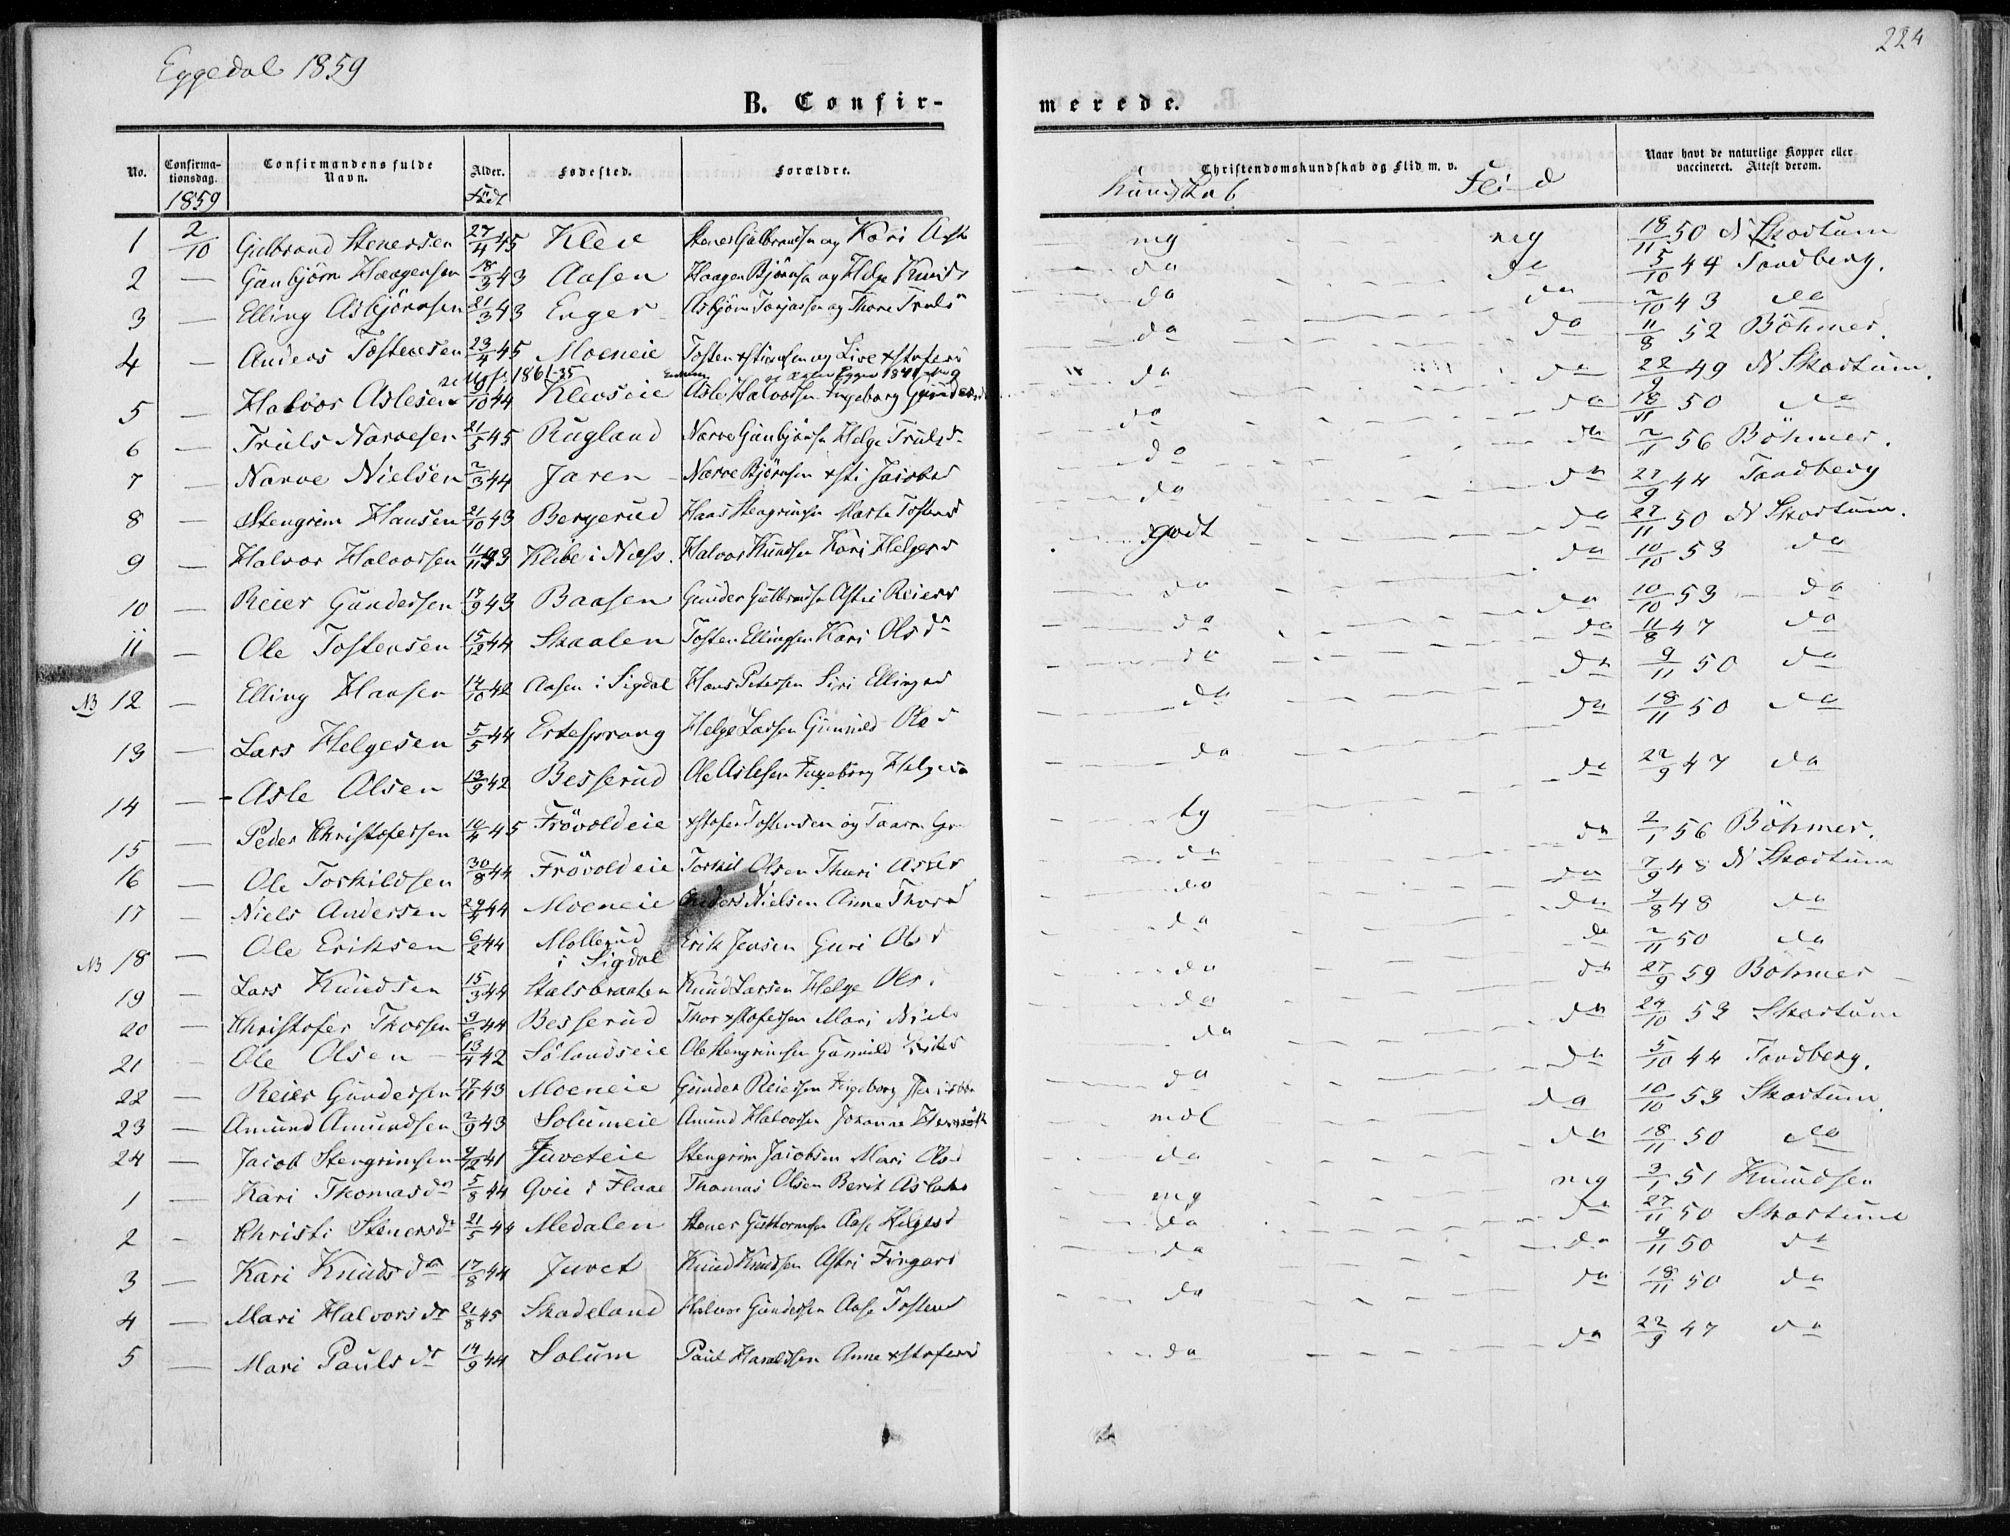 224
Eggedal 1859
B. Confir-
merede.
No. Confirma-tionsdag. Confirmandens fulde Navn. Alder. Fødested. Forældre. Christendomskundskab og Flid m. v. Naar havt de naturlige Kopper eller vaccineret. Attest derom.
1859 Født Kundskab Flid
1 2/10 Gulbrand Stenersen 27/4 45 Kleve Stener Gulbrandsen og Kari mg mg 18/11 50 N Skartum
2 — Gunbjörn Haagensen 18/3 43 Aasen Haagen Björnsen og Helge Knuds do do 5/10 44 Tandberg.
3 — Elling Asbjörnsen 21/3 43 Enger Asbjörn og Thore Truls do do 2/10 43 do
4 — Anders Tostensen 23/4 45 Moeneie Tosten og Live do do 11/8 52 Böhmer.
5 — Halvor Aslesen /10 44 Klevseie Asle Halvorsen Ingeborg Gunders do do 22/9 49 N Skartum.
6 — Truls Narvesen 21/5 45 Rugland Narve Gunbjörnsen Helge Trulsd do do 18/11 50 do
7 — Narve Nielsen 2/3 44 Jaren Narve Björnsen do do 2/11 56 Böhmer.
8 — Stengrim Hansen 21/10 43 Bergerud Hans Stengrimsen Marte Tostens do do 27/9 44 Tandberg
9 — Halvor Halvorsen 11/11 43 Klebe i Næss. Halvor Knudsen Kari Helges godt do 27/11 50 N Skartum.
10 — Reier Gundersen 17/9 43 Baasen Gunder Gulbrandsen Astri Reiers do do 10/10 53 do
11 — Ole Tostensen 15/12 44 Skaalen Tosten Ellingsen Kari Olsdr do do 10/10 53 do
NB 12 — Elling Hansen 14/10 42 Aasen i Sigdal Hans Petersen Siri Ellingsd do do 11/8 47 do
13 — Lars Helgesen 5/5 44 Ertesprang Helge Larsen Gunnild Olsd do do 9/11 50 do
14 — Asle Olsen 13/9 42 Besserud Ole Aslesen Ingeborg Helges do do 18/11 50 do
15 — Peder Christofersen 10/4 45 Frövoldeie xstofer Tostensen og tg do 22/9 47 do
16 — Ole Torkildsen 30/8 44 Frövoldeie Torkil Olsen Thuri Asles do do 2/1 56 Böhmer.
17 — Niels Andersen 29/4 44 Moeneie Anders Nielsen Anne Thorsd do do 7/9 48 N Skartum
NB 18 — Ole Eriksen 6/2 44 Mollerud i Sigdal Erik Jensen Guri Olsd do do 9/8 48 do
19 — Lars Knudsen 15/3 44 Stalsbraaten Knud Larsen Helge Ols. do do 2/11 50 do
20 — Christofer Thorsen 3/6 44 Besserud Thor xstofersen Mari Niels do do 27/9 59 Böhmer
21 — Ole Olsen 13/4 42 Sölandseie Ole Stengrimsen Gunnild do do 24/10 53 Skartum
22 — Reier Gundersen 17/11 43 Moeneie Gunder Reiersen Ingeborg do do 5/10 44 Tandberg.
23 — Amund Amundsen 2/9 43 Solumeie Amund Halvorsen Johanne mdl do 10/10 53 Skartum.
24 — Jacob Stengrimsen 9/12 41 Juveteie Stengrim Jacobsen Mari Olsd do do 18/11 50 do
1 — Kari Thomasdr 5/8 44 Gvie i Flaae Thomas Olsen Berit Aslaks mg mg 3/1 51 Knudsen
2 - Christi Stenersdr 21/5 44 Medalen Stener Guttormsen Aase Helgesd do do 27/11 50 Skartum
3 — Kari Knudsdr 17/8 44 Juvet Knud Knudsen Astri Fingars do do 9/11 50 do
4 — Mari Halvorsdr 21/8 45 Skadeland Halvor Gundersen Aase Tostens do do 18/11 50 do
5 — Mari Paulsdr 14/9 44 Solum Paul Haraldsen Anne xstofers do do 22/9 47 do